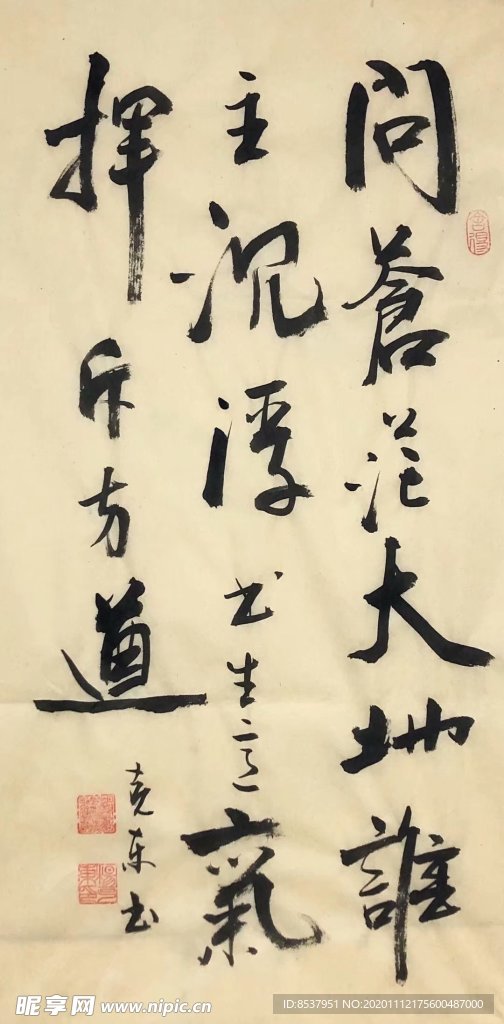 問蒼茫大地誰
主沉浮书生意氣
揮斥方遒
克东书
昵享网 www.nipic.cn
ID:8537951 NO:20201112175600487000